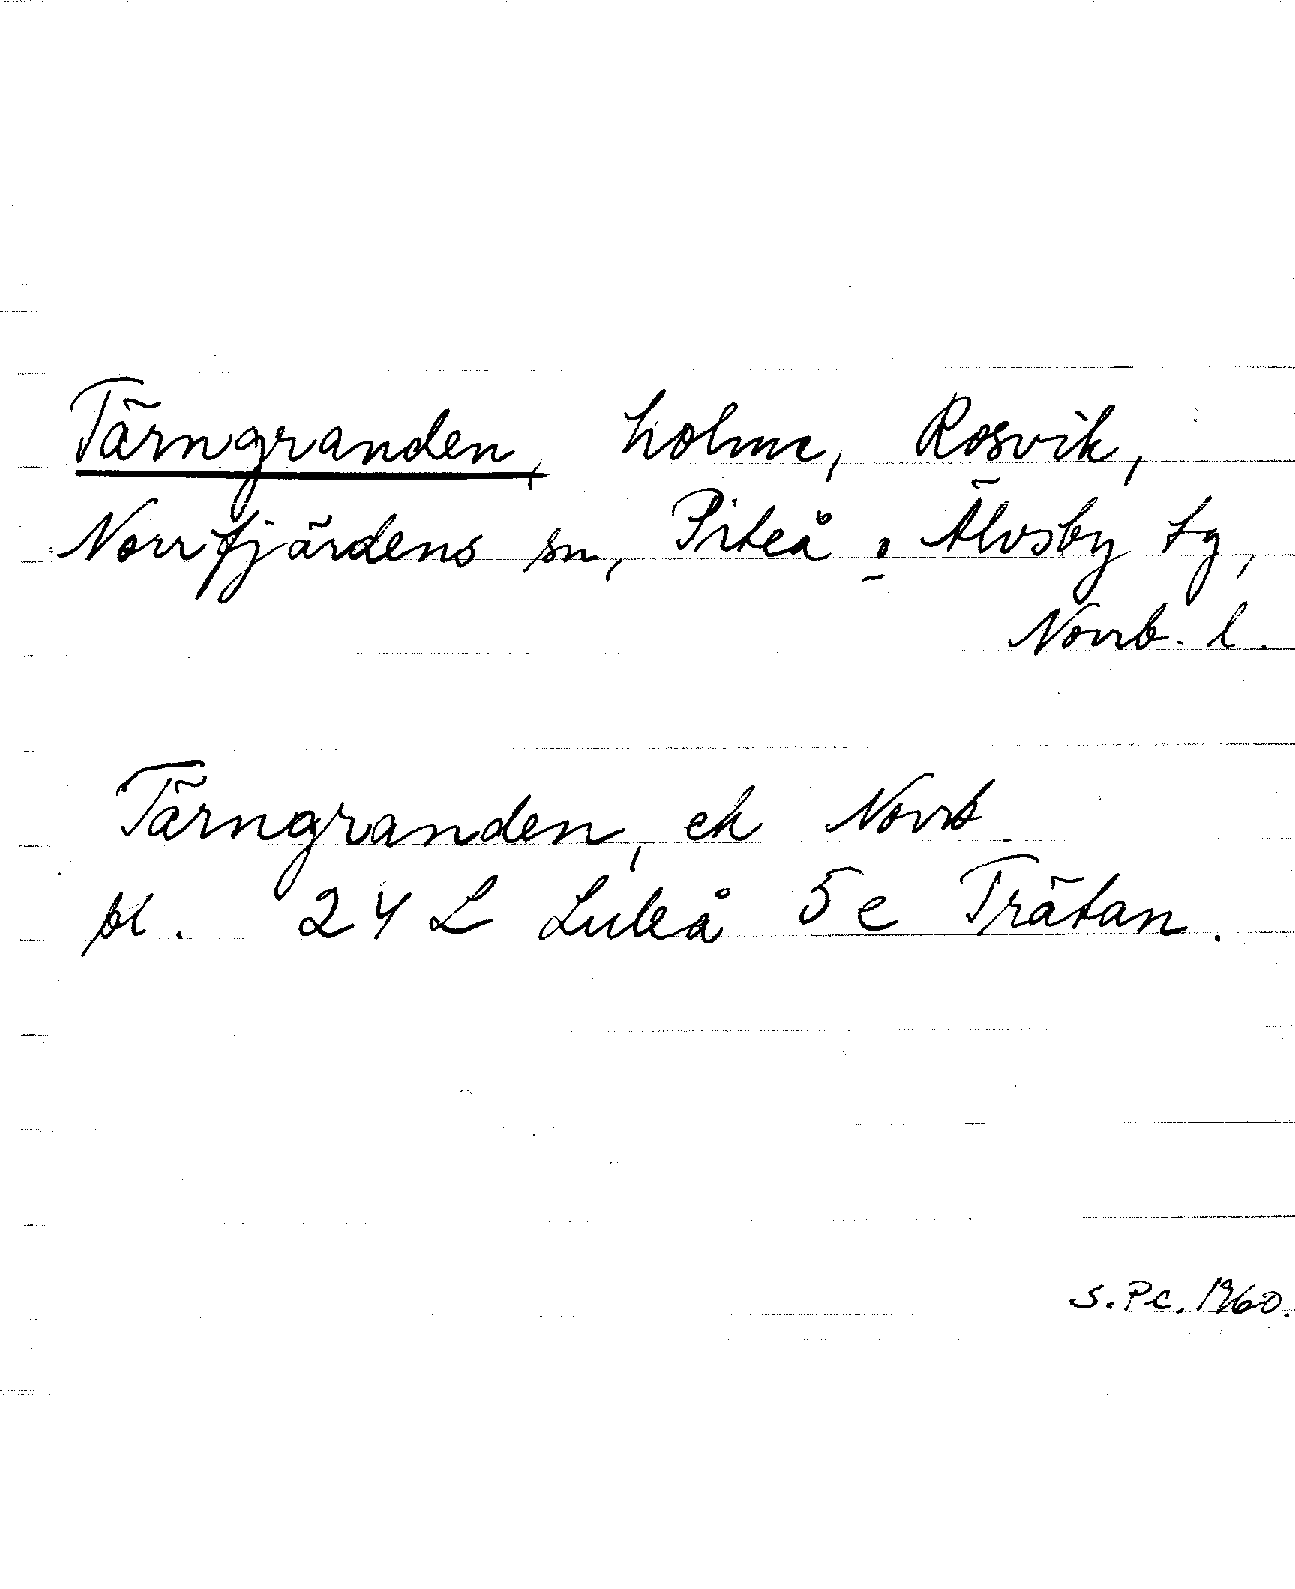 Tärngranden, holme, Rosvik,
Norrfjärdens sn, Piteå o Älvsby tg,
Norrb. l.
Tärngranden, ek Norrb
bl. 24 L Luleå 5 e Trätan.
S.Pc. 1960.